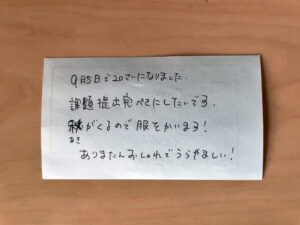 9月5日で20さいになりました.
課題提出完ぺきにしたいです.
秋がくるので服をかいます!
あき
ありまたんおしゃれでうらやましい!